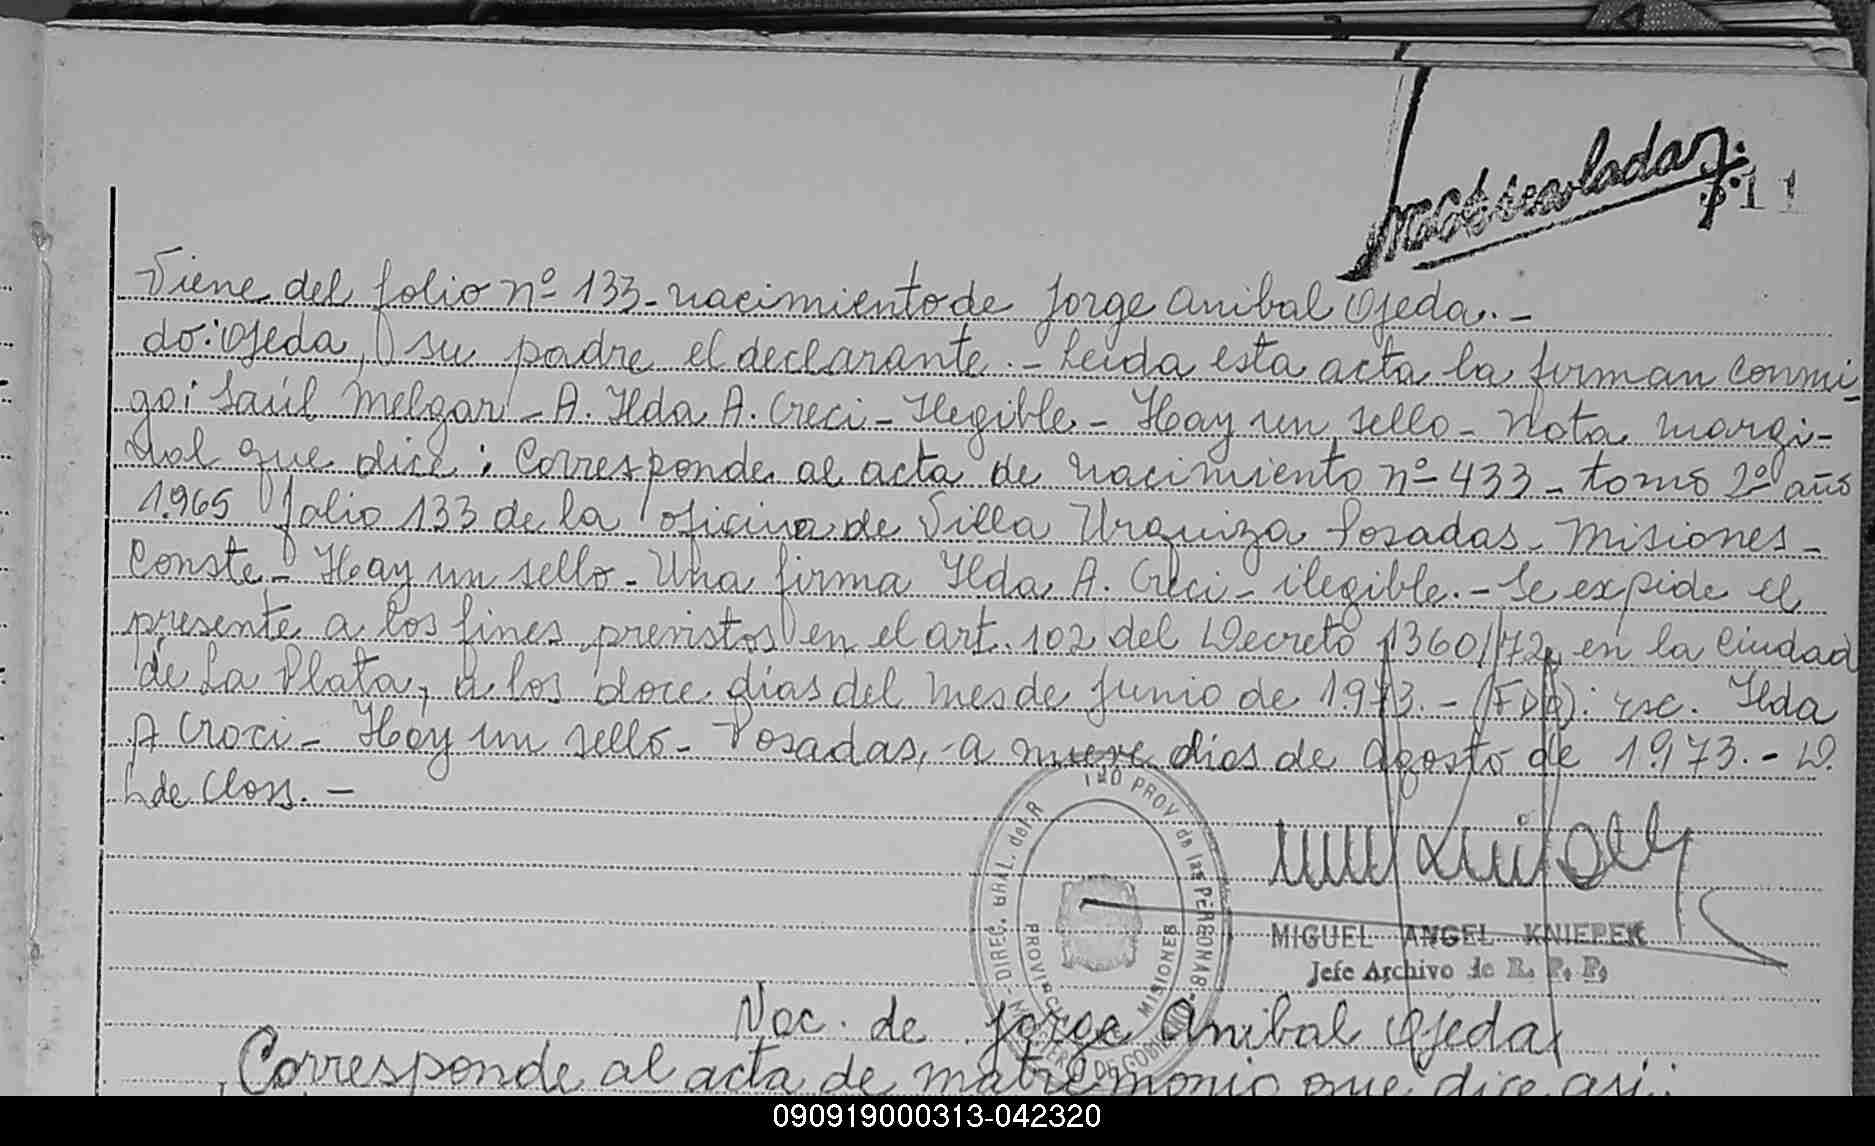 311
Viene del folio nº 133 - nacimiento de Jorge Anibal Ojeda. -
do: Ojeda, su padre el declarante. - Leida esta acta la firman conmi-
go: Saúl Melgar - A. Ilda A. Creci - Ilegible - Hay un sello - Nota margi-
nal que dice: Corresponde al acta de nacimiento nº 433 - tomo 2º año
1.965 folio 133 de la oficina de Villa Urquiza Posadas - Misiones -
Conste - Hay un sello - Una firma Ilda A. Creci - ilegible. - Se expide el
presente a los fines previstos en el art. 102 del Decreto 1360/72, en la Ciudad
de La Plata, a los doce días del mes de Junio de 1973. - (FDO): esc. Ilda
A Croci - Hay un sello - Posadas, a nueve días de Agosto de 1.973. - D.
L de Closs. -
DIREC. GRAL. del R PROV de las PERSONAS
PROVINCIA MISIONES
MINISTERIO DE GOBIERNO
MIGUEL ANGEL KNIEPEK
Jefe Archivo de R. P. P.
Nac. de Jorge Anibal Ojeda
Corresponde al acta de matrimonio que dice asi:
090919000313-042320